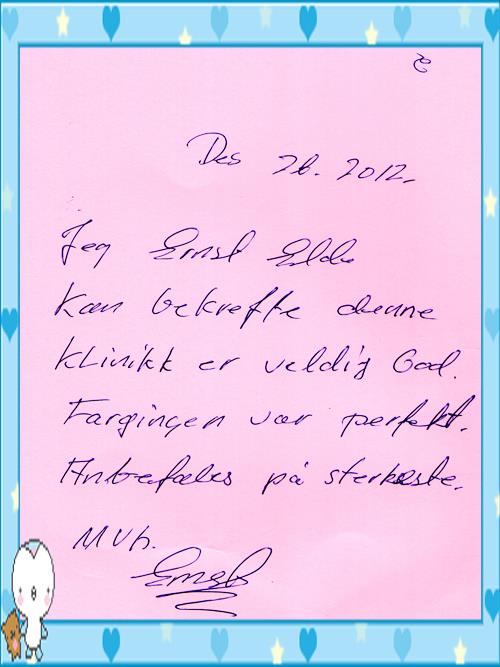 Des 26. 2012.
Jeg Ernst Elde
Kan bekrefte denne
Klinikk er veldig God.
Fargingen var perfekt.
Anbefales på sterkeste.
Mvh.
Ernst